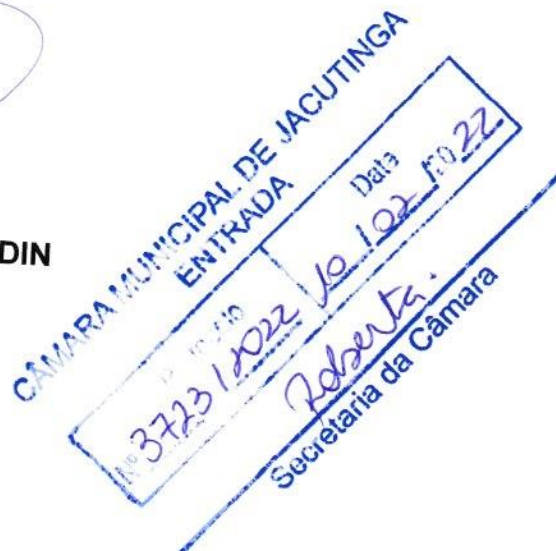 DIN
CÂMARA MUNICIPAL DE JACUTINGA
ENTRADA
Data
Nº 3723 / 2022 10 / 02 / 2022
Roberta.
Secretaria da Câmara